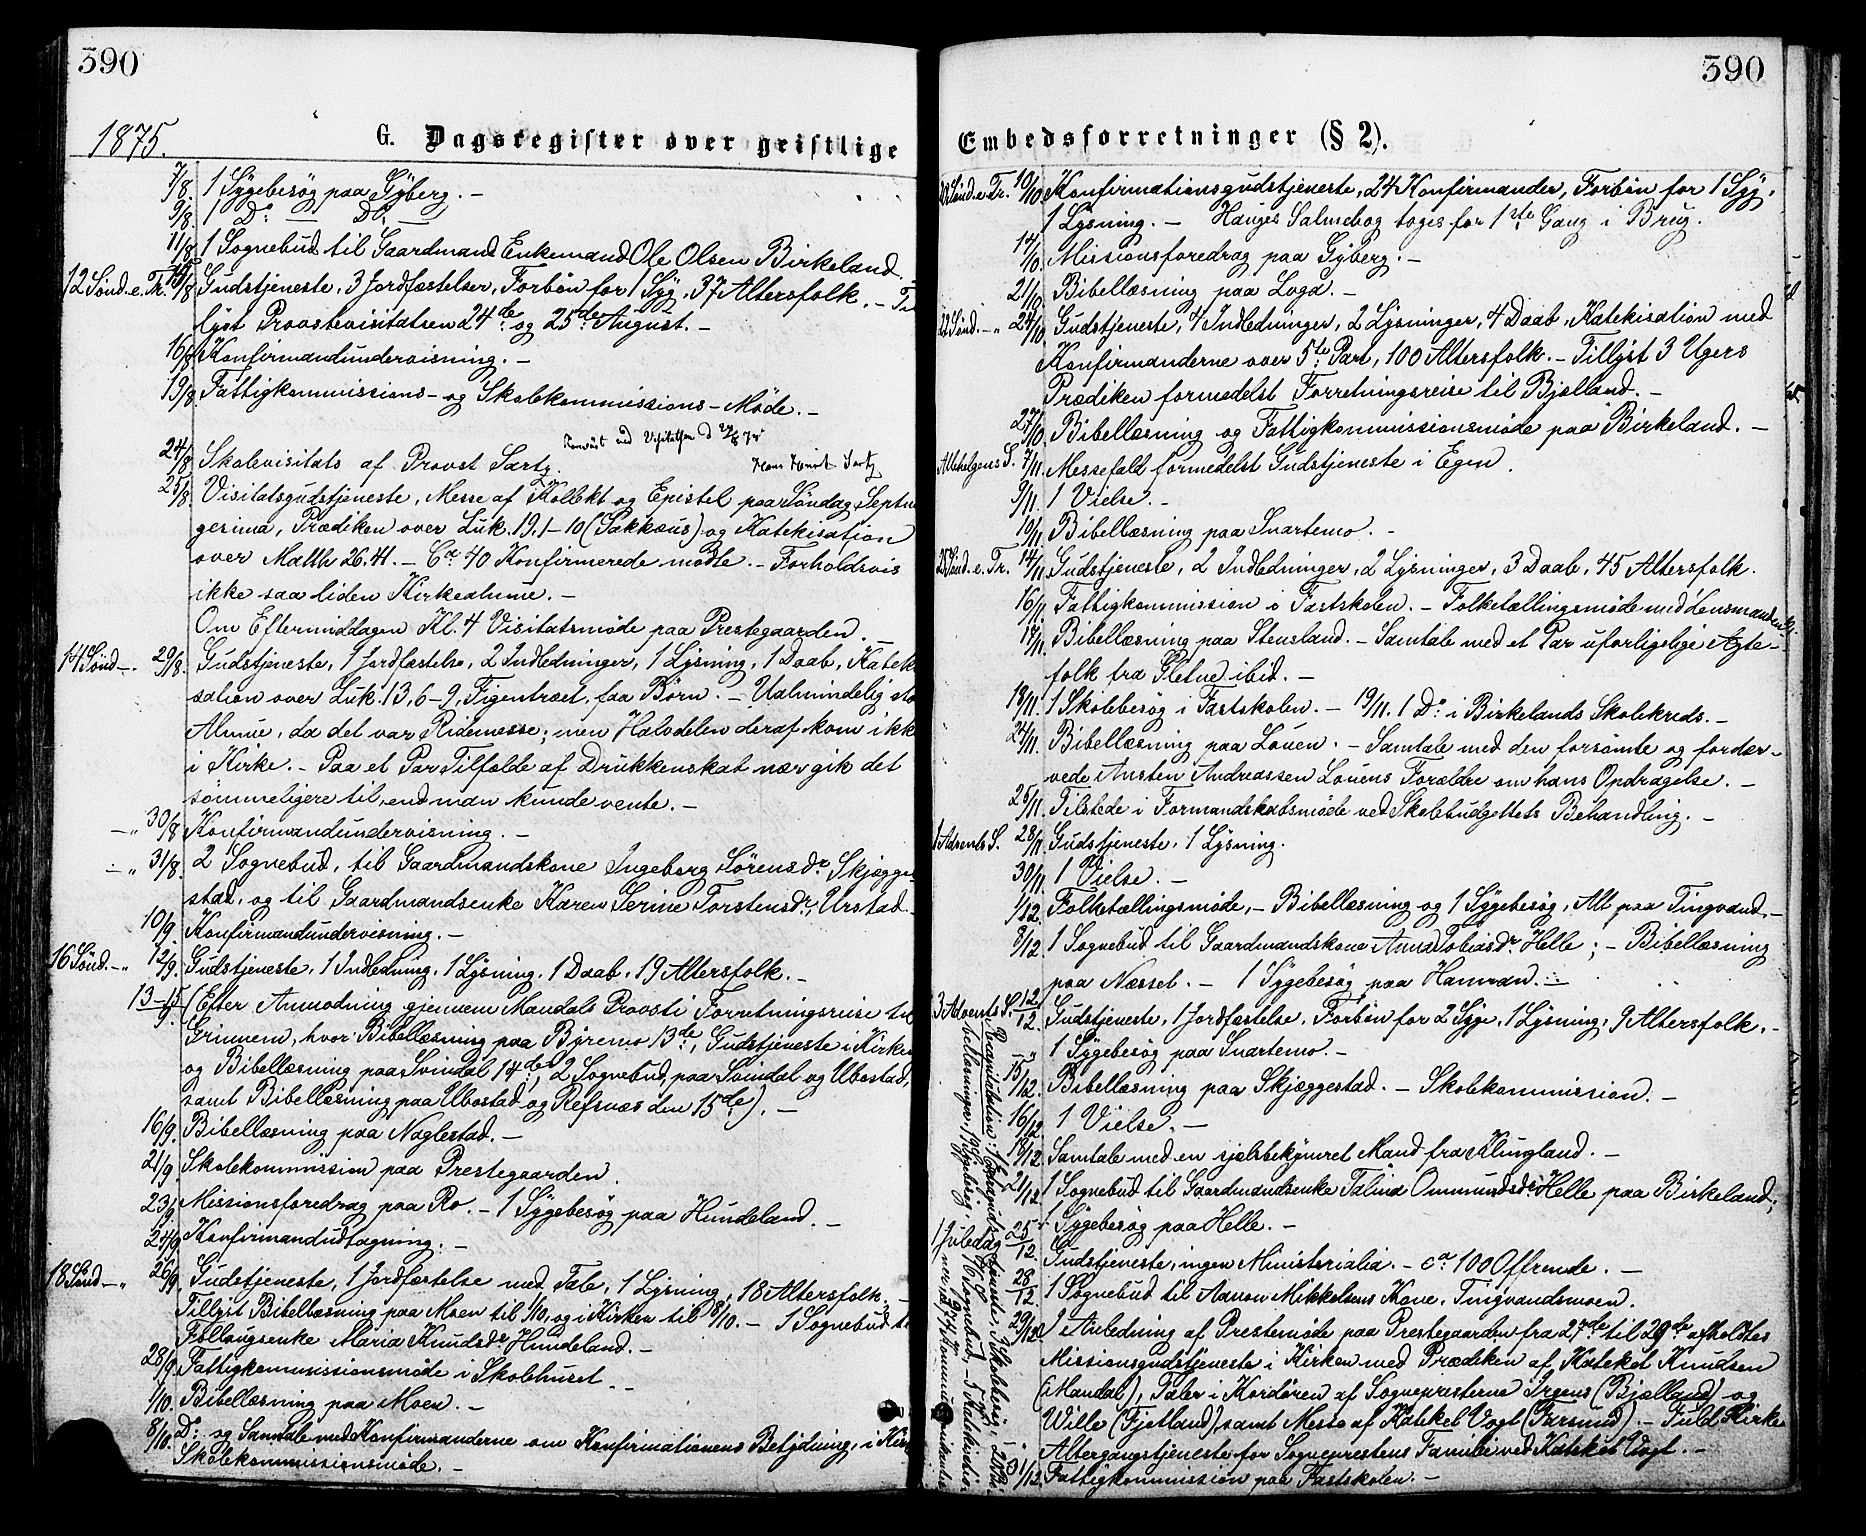 390
1875. G. Dagsregister over geistlige
7/8. 1 Sygebesøg paa Gyberg. —
9/8. 1 Do. — Do. —
11/8. 1 Sognebud til Gaardmand Enkemand Ole Olsen Birkeland.
12 Sønd. e. Tr. 15/8. Gudstjeneste, 3 Jordfæstelser, Forbøn for 1 Syg, 37 Altersfolk. — Til
lyst Provstevisitatsen 24de og 25de August. —
16/8. Konfirmandundervisning. —
19/8. Fattigkommissions- og Skolekommissions-Møde. —
ved Visitatsen d.
24/8. Skolevisitats af Provst Sartz.
Sartz
25/8. Visitatsgudstjeneste, Messe af Kollekt og Epistel paa Søndag Septua
gesima, Prædiken over Luk. 19. 1-10 (Sakkæus) og Katekisation
over Matth 26. 41. — Ca 40 Konfirmerede mødte. — Forholdsvis
ikke saa liden Kirkealmue. —
Om Eftermiddagen Kl. 4 Visitatsmøde paa Prestegaarden. —
14 Sønd —. 29/8. Gudstjeneste, 1 Jordfæstelse, 2 Indledninger, 1 Lysning, 1 Daab, Kateki
sation over Luk. 13, 6-9, Figentræet, faa Børn. — Ualmindelig sto
Almue, da det var Ridemesse; men Halvdelen deraf kom ikk
i Kirke. — Paa et Par Tilfælde af Drukkenskab nær gik det
sømmeligere til, end man kunde vente. —
—„ 30/8. Konfirmandundervisning. —
—„ 31/8. 2 Sognebud, til Gaardmandskone Ingeborg Sørensdr. Skjægge-
stad, og til Gaardmandsenke Karen Serine Torstensdr. Urstad. —
10/9. Konfirmandundervisning. —
16 Sønd. —„ 12/9. Gudstjeneste, 1 Indledning, 1 Lysning, 1 Daab, 19 Altersfolk. —
13-15/9. (Efter Anmodning gjennem Mandals Provsti Forretningsreise til
Grinnem, hvor Bibellæsning paa Byremo 13de, Gudstjeneste i Kirken
og Bibellæsning paa Svindal 14de, 2 Sognebud, paa Svindal og Ubostad,
samt Bibellæsning paa Ubostad og Refsnæs den 15de). —
16/9. Bibellæsning paa Naglestad. —
21/9. Skolekommission paa Prestegaarden.
23/9. Missionsforedrag paa Ro. — 1 Sygebesøg paa Hundeland. —
24/9. Konfirmandudtagning. —
18 Sønd —„ 26/9. Gudstjeneste, 1 Jordfæstelse med Tale, 1 Lysning, 18 Altersfolk. —
Tillyst Bibellæsning paa Moen til 1/10, og i Kirken til 8/10. — 1 Sognebud t
Føllaugsenke Maria Knudsdr. Hundeland. —
28/9. Fattigkommissionsmøde i Skolehuset. —
1/10. Bibellæsning paa Moen. —
8/10. Do. og Samtale med Konfirmanderne om Konfirmationens Betydning, i Kirk
Skolekommissionsmøde. —
390
Embedsforretninger (§ 2).
Sønd. e. Tr. 10/10. Konfirmationsgudstjeneste, 24 Konfirmander, Forbøn for 1 Syg,
1 Lysning. — Hauges Salmebog toges for 1ste Gang i Brug.
14/10. Missionsforedrag paa Gyberg. —
21/10. Bibellæsning paa Loga. —
22 Sønd. —„ 24/10. Gudstjeneste, 4 Indledninger, 2 Lysninger, 4 Daab, Katekisation med
Konfirmanderne over 5te Part, 100 Altersfolk. — Tillyst 3 Ugers
Prædiken formedelst Forretningsreise til Bjelland. —
27/10. Bibellæsning og Fattigkommissionsmøde paa Birkeland. —
Allehelgens S. 7/11. Messefald formedelst Gudstjeneste i Egen.
9/11. 1 Vielse. —
10/11. Bibellæsning paa Snartemo. —
25 Sønd. e. Tr. 14/11. Gudstjeneste, 2 Indledninger, 2 Lysninger, 3 Daab, 45 Altersfolk.
16/11. Fattigkommission i Fastskolen. — Folketællingsmøde med Lensmanden
17/11. Bibellæsning paa Stensland. — Samtale med et Par uforligelige Ægte-
folk fra Gletne ibid. —
18/11. 1 Skolebesøg i Fastskolen. — 19/11. 1 Do. i Birkelands Skolekreds. —
24/11. Bibellæsning paa Louen. — Samtale med den forsømte og fordær-
vede Ansten Andreassen Louens Forældre om hans Opdragelse. —
25/11. Tilstede i Formandskabsmøde ved Skolebudgettets Behandling. —
1 Advents S. 28/11. Gudstjeneste, 1 Lysning.
30/11. 1 Vielse. —
1/12. Folketællingsmøde, — Bibellæsning og 1 Sygebesøg, Alt paa Tingvand. —
8/12. 1 Sognebud til Gaardmandskone Anna Tobiasdr. Helle; — Bibellæsning
paa Næsset. — 1 Sygebesøg paa Hamran. —
3 Advents S. 12/12. Gudstjeneste, 1 Jordfæstelse, Forbøn for 2 Syge, 1 Lysning, 9 Altersfolk. —
—„ 1 Sygebesøg paa Snartemo. —
15/12. Bibellæsning paa Skjæggestad. — Skolekommission. —
16/12. 1 Vielse. —
18/12. Samtale med en sjælsbekymret Mand fra Klungland. —
21/12. 1 Sognebud til Gaardmandsenke Talina Ommundsdr. Helle paa Birkeland;
1 Sygebesøg paa Helle. —
1 Juledag 25/12. Gudstjeneste, ingen Ministerialia. — ca 100 Offrende. —
28/12. 1 Sognebud til Aanon Mikkelsens Kone, Tingvandsmoen.
29/12. I Anledning af Prestemøde paa Prestegaarden fra 27de til 29de afholdtes
Missionsgudstjeneste i Kirken med Prædiken af Kateket Knudsen
(Mandal), Taler i Kordøren af Sognepresterne Irgens (Bjelland) og
Wille (Fjotland), samt Messe af Kateket Vogt (Farsund). — Fuld Kirke
Altergangstjeneste for Sogneprestens Familie ved Kateket Vogt. —
31/12. Fattigkommission paa Fastskolen. —